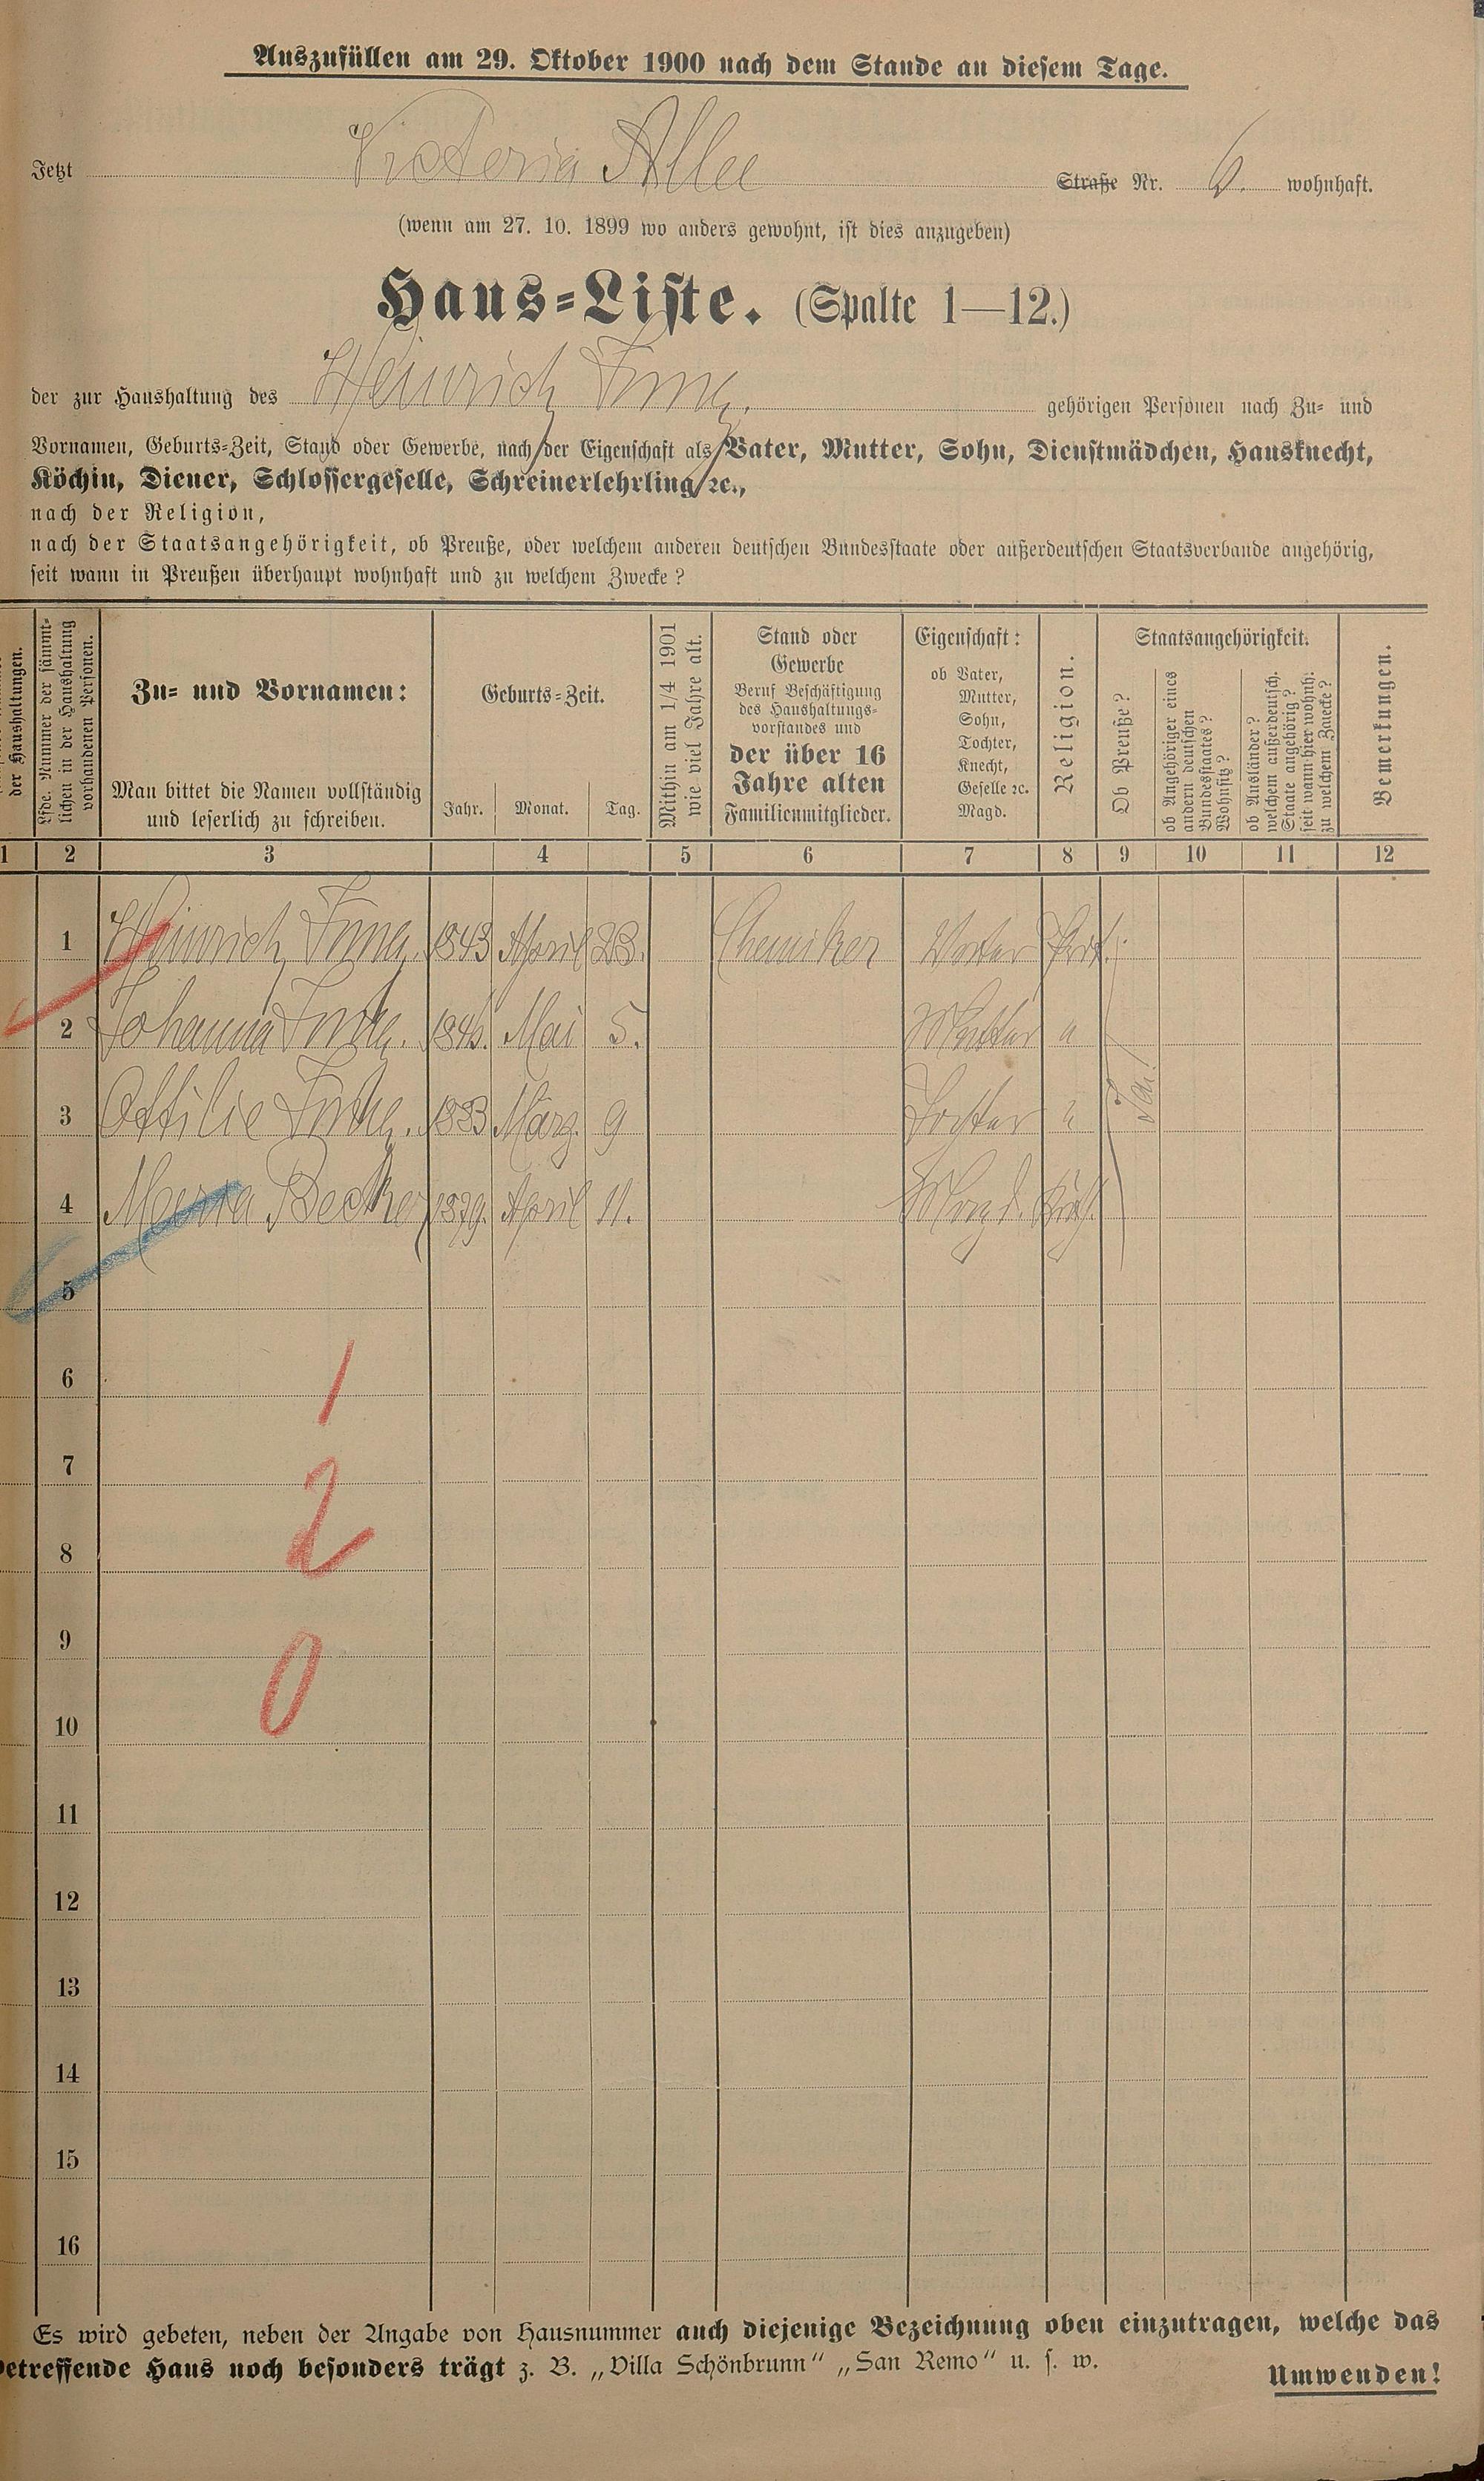 Auszufüllen am 29. Oktober 1900 nach dem Stande an diesem Tage.
Jetzt Victoria Allee Straße Nr. 6. wohnhaft.
(wenn am 27. 10. 1899 wo anders gewohnt, ist dies anzugeben)
Haus-Liste. (Spalte 1—12.)
der zur Haushaltung des Heinrich gehörigen Personen nach Zu- und
Vornamen, Geburts-Zeit, Stand oder Gewerbe, nach der Eigenschaft als Vater, Mutter, Sohn, Dienstmädchen, Hausknecht,
Köchin, Diener, Schlossergeselle, Schreinerlehrling ꝛc.,
nach der Religion,
nach der Staatsangehörigkeit, ob Preuße, oder welchem anderen deutschen Bundesstaate oder außerdeutschen Staatsverbande angehörig,
seit wann in Preußen überhaupt wohnhaft und zu welchem Zwecke?
der Haushaltungen.
Lfde. Nummer der sämmt-
lichen in der Haushaltung
vorhandenen Personen.
Zu- und Vornamen:
Man bittet die Namen vollständig
und leserlich zu schreiben.
Geburts-Zeit.
Jahr. Monat. Tag.
Mithin am 1/4 1901
wie viel Jahre alt.
Stand oder
Gewerbe
Beruf Beschäftigung
des Haushaltungs-
vorstandes und
der über 16
Jahre alten
Familienmitglieder.
Eigenschaft:
ob Vater,
Mutter,
Sohn,
Tochter,
Knecht,
Geselle ꝛc.
Magd.
Religion.
Staatsangehörigkeit.
Ob Preuße?
ob Angehöriger eines
andern deutschen
Bundesstaates?
Wohnsitz?
ob Ausländer?
welchem außerdeutsch.
Staate angehörig?
seit wann hier wohnh.
zu welchem Zwecke?
Bemerkungen.
1 2 3 4 5 6 7 8 9 10 11 12
1 Heinrich 1843 April 23. Chemiker Vater Prot.
2 Johanna Mai 5. Mutter "
3 Ottilie 1883 März 9 Tochter "
Ja!
4 Maria Becker 1879. April 11. Magd. Kath.
5
6
1
7
2
8
9
0
10
11
12
13
14
15
16
Es wird gebeten, neben der Angabe von Hausnummer auch diejenige Bezeichnung oben einzutragen, welche das
betreffende Haus noch besonders trägt z. B. „Villa Schönbrunn" „San Remo" u. s. w.
Umwenden!